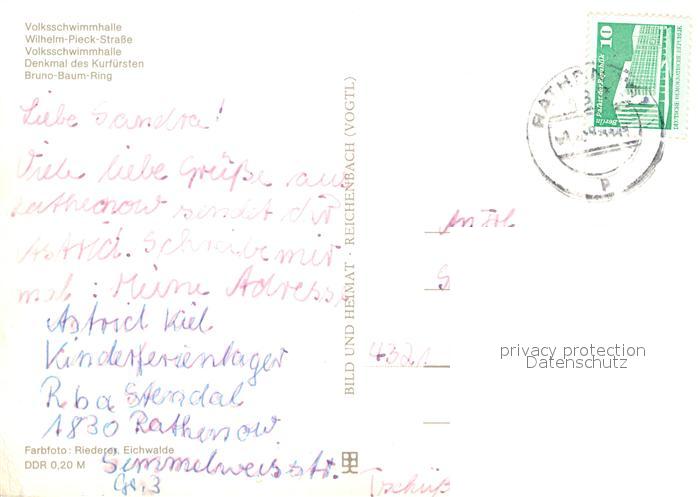 Volksschwimmhalle
Wilhelm-Pieck-Straße
Volksschwimmhalle
Denkmal des Kurfürsten
Bruno-Baum-Ring
Liebe Sandra!
Viele liebe Grüße aus
Rathenow sendet dir
Astrid. Schreibe mir
mal: Meine Adresse
Astrid Kiel
Kinderferienlager
Rba Stendal
1830 Rathenow
Semmelweisstr.
Gr. 3
Farbfoto: Riederer, Eichwalde
DDR 0,20 M
BILD UND HEIMAT · REICHENBACH (VOGTL)
10
Berlin, Palast der Republik
DEUTSCHE DEMOKRATISCHE REPUBLIK
RATHENOW
S
4321
privacy protection
Datenschutz
Tschüß